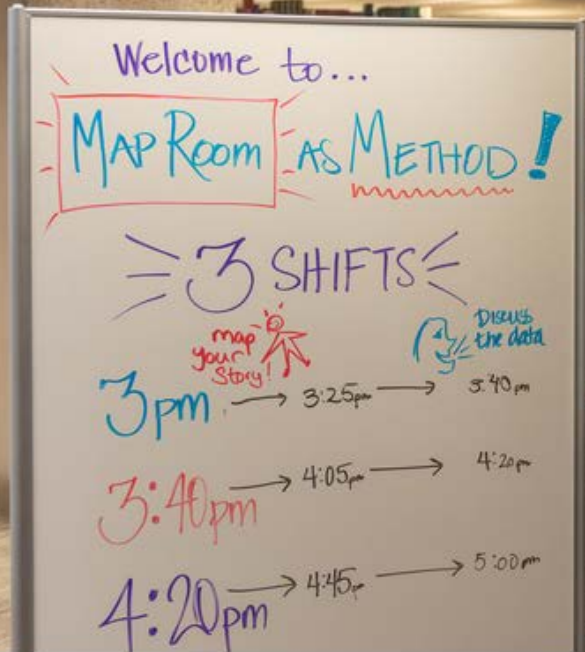 Welcome to...
MAP ROOM AS METHOD!
3 SHIFTS
map your Story!
Discuss the data
3pm → 3:25pm → 3:40pm
3:40pm → 4:05pm → 4:20pm
4:20pm → 4:45p → 5:00pm